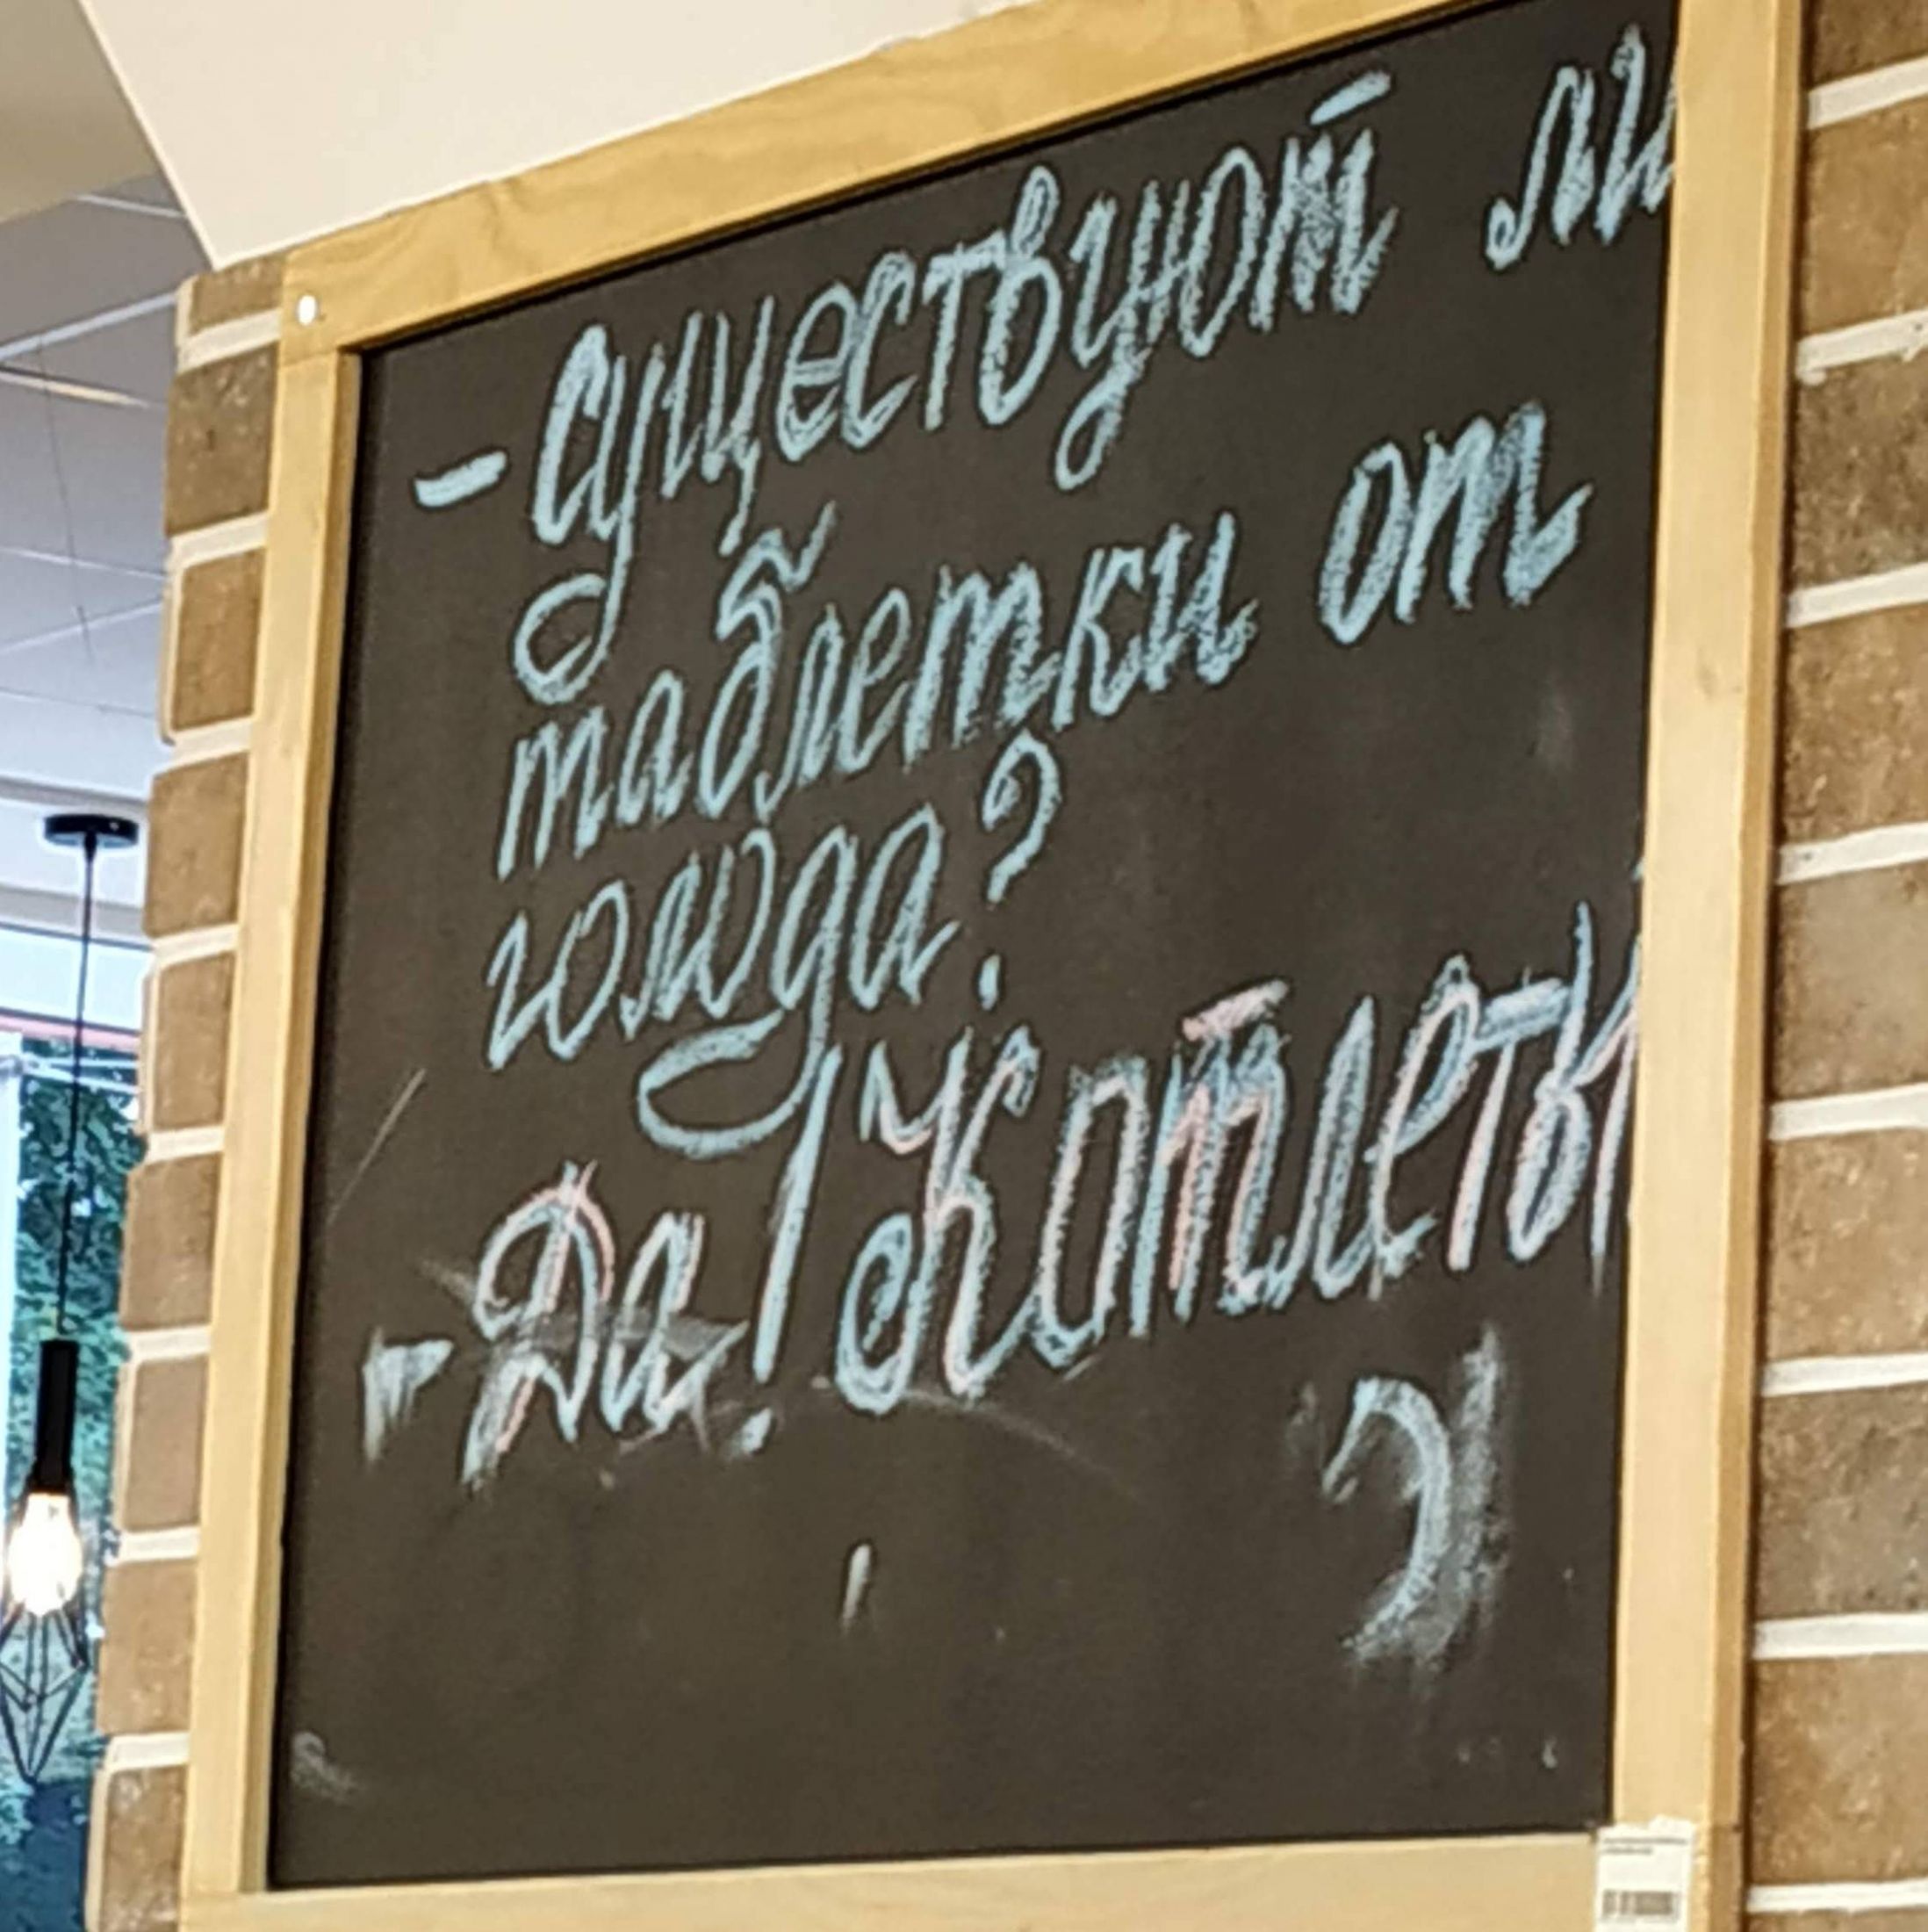 - Существуют ли
таблетки от
голода?
- Да! Котлеты